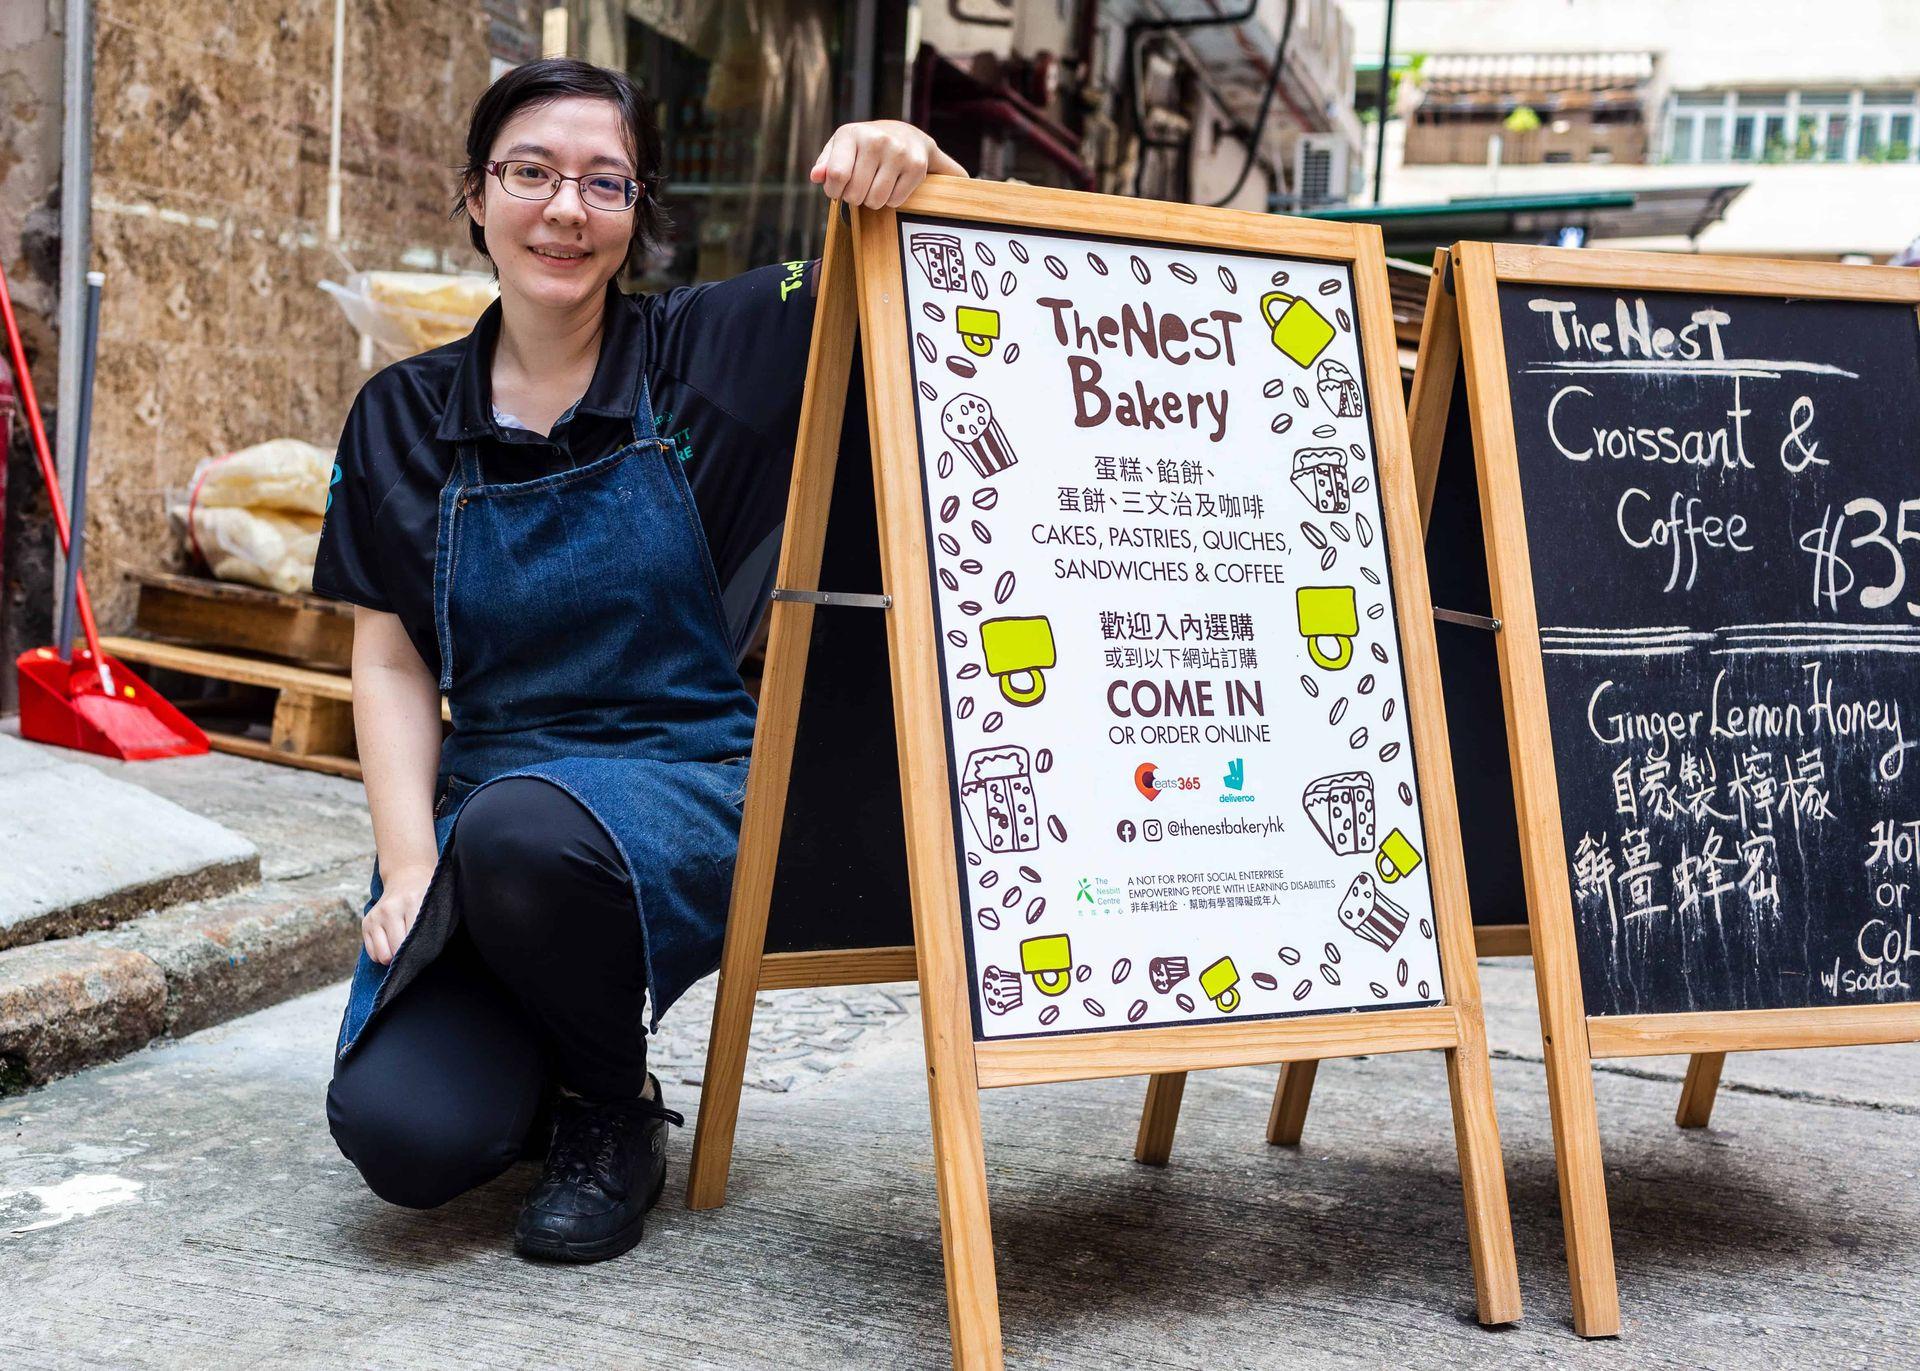 The
TT
RE
TheNesT
Bakery
蛋糕、餡餅、
蛋餅、三文治及咖啡
CAKES, PASTRIES, QUICHES,
SANDWICHES & COFFEE
歡迎入內選購
或到以下網站訂購
COME IN
OR ORDER ONLINE
eats365
deliveroo
@thenestbakeryhk
The
Nesbitt
Centre
A NOT FOR PROFIT SOCIAL ENTERPRISE
EMPOWERING PEOPLE WITH LEARNING DISABILITIES
非牟利社企・幫助有學習障礙成年人
The NesT
Croissant &
Coffee $35
Ginger Lemon Honey
自家製檸檬
鮮薑蜂蜜
HoT
or
CoL
w/soda